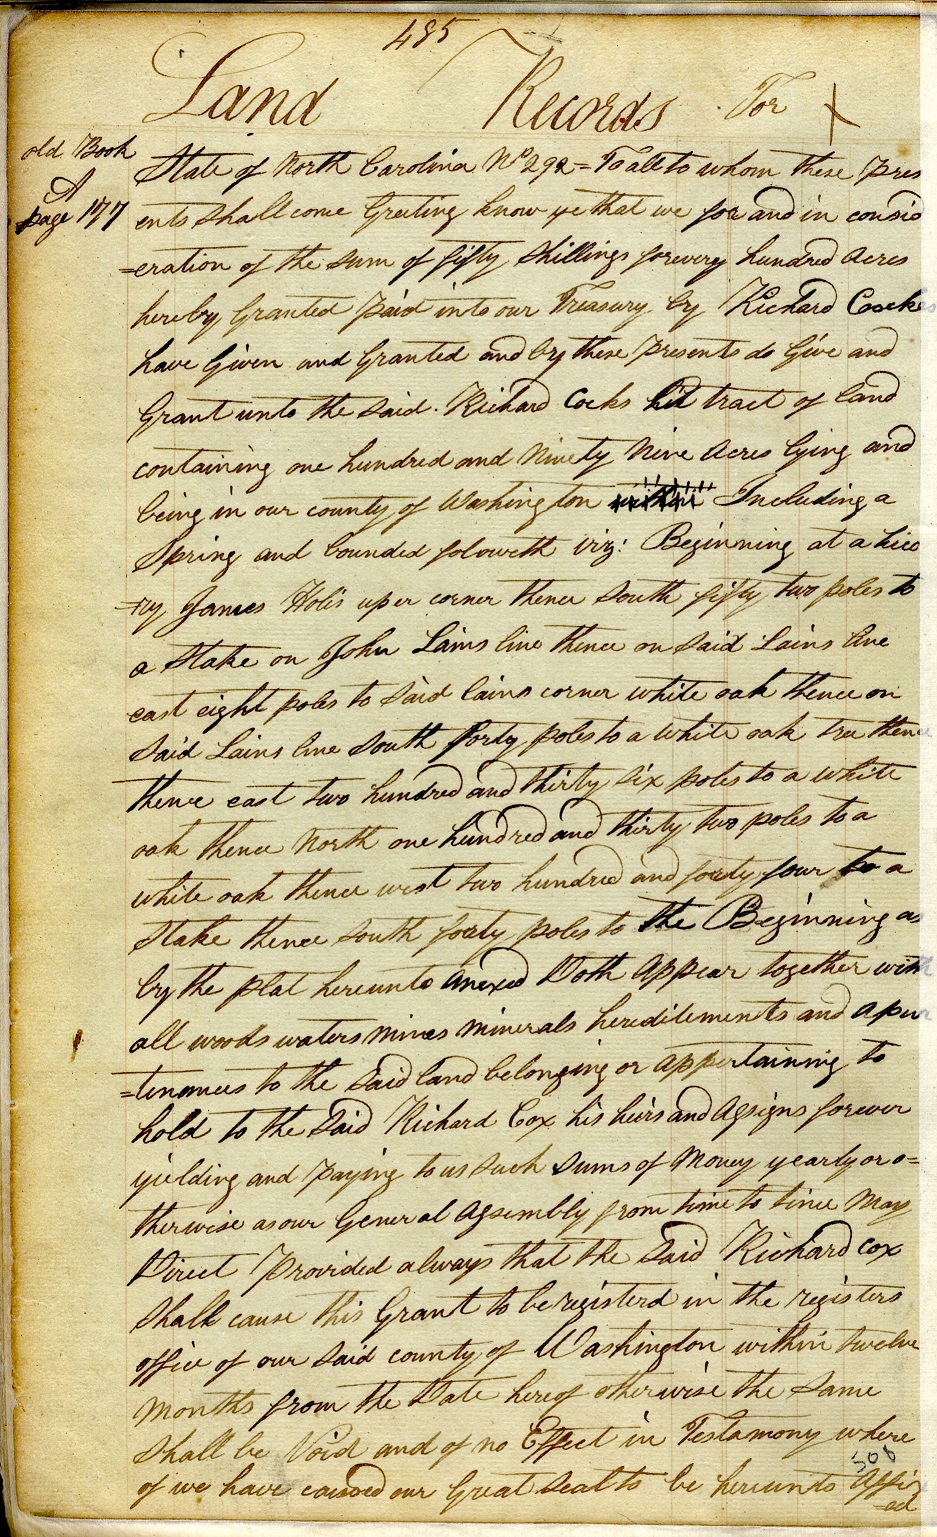 485
Land Records For
old Book
A
page 177
State of North Carolina No 292 = To all to whom these Pres
ents shall come Greeting know ye that we for and in consid
=eration of the sum of fifty shillings forevery hundred acres
hereby Granted Paid into our Treasury by Richard Cocks
have Given and Granted and by these Presents do Give and
Grant unto the said Richard Cocks tract of land
containing one hundred and Ninety Nine Acres lying and
being in our county of Washington Including a
Spring and bounded foloweth viz: Beginning at a hico
=ry James Holis uper corner thence South fifty two poles to
a Stake on John Lains line thence on said Lains line
east eight poles to said lains corner white oak thence on
said Lains line South forty poles to a white oak tree thence
thence east two hundred and thirty six poles to a white
oak thence North one hundred and thirty two poles to a
white oak thence west two hundred and forty four to a
Stake thence south forty poles to the Beginning as
by the plat hereunto anexed Doth Appear together with
all woods waters mines minerals hereditements and apur
=tenances to the said land belonging or appertaining to
hold to the said Richard Cox his heirs and Assigns forever
yielding and Paying to us such sums of Money yearly or o=
therwise as our General Assembly from time to time May
Direct Provided always that the said Richard Cox
Shall cause this Grant to be registerd in the registers
office of our said county of Washington within twelve
Months from the Date hereof otherwise the same
Shall be Void and of no Effect in Testamony where
of we have caused our Great Seal to be hereunto Affix
=ed